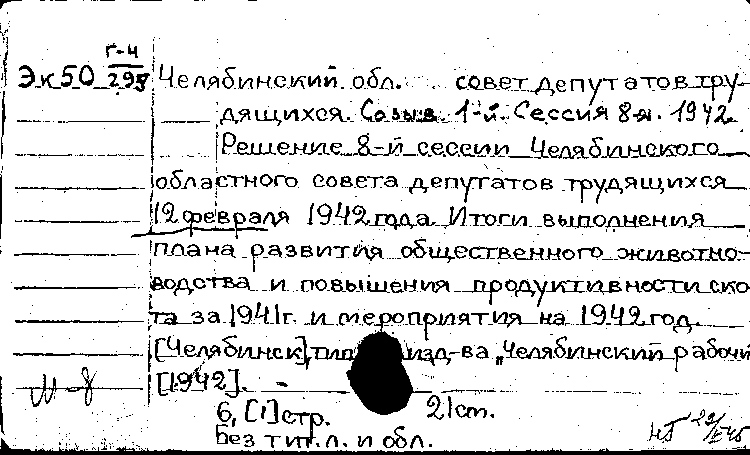 Г-4
Эк50 295 Челябинский обл. совет депутатов тру-
дящихся. Созыв 1-й. Сессия 8-я. 1942.
Решение 8-й сессии Челябинского
областного совета депутатов трудящихся
12 февраля 1942 года. Итоги выполнения
плана развития общественного животно-
водства и повышения продуктивности ско-
та за 1941г. и мероприятия на 1942 год.
[Челябинск], тип. изд-ва "Челябинский рабочий
[1942].
6, [1] стр. 21 см.
Без тит. л. и обл.